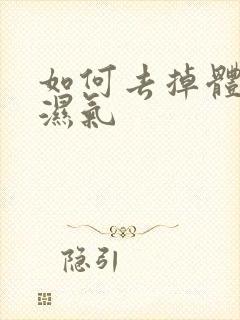 如何去掉體
濕氣
隐引